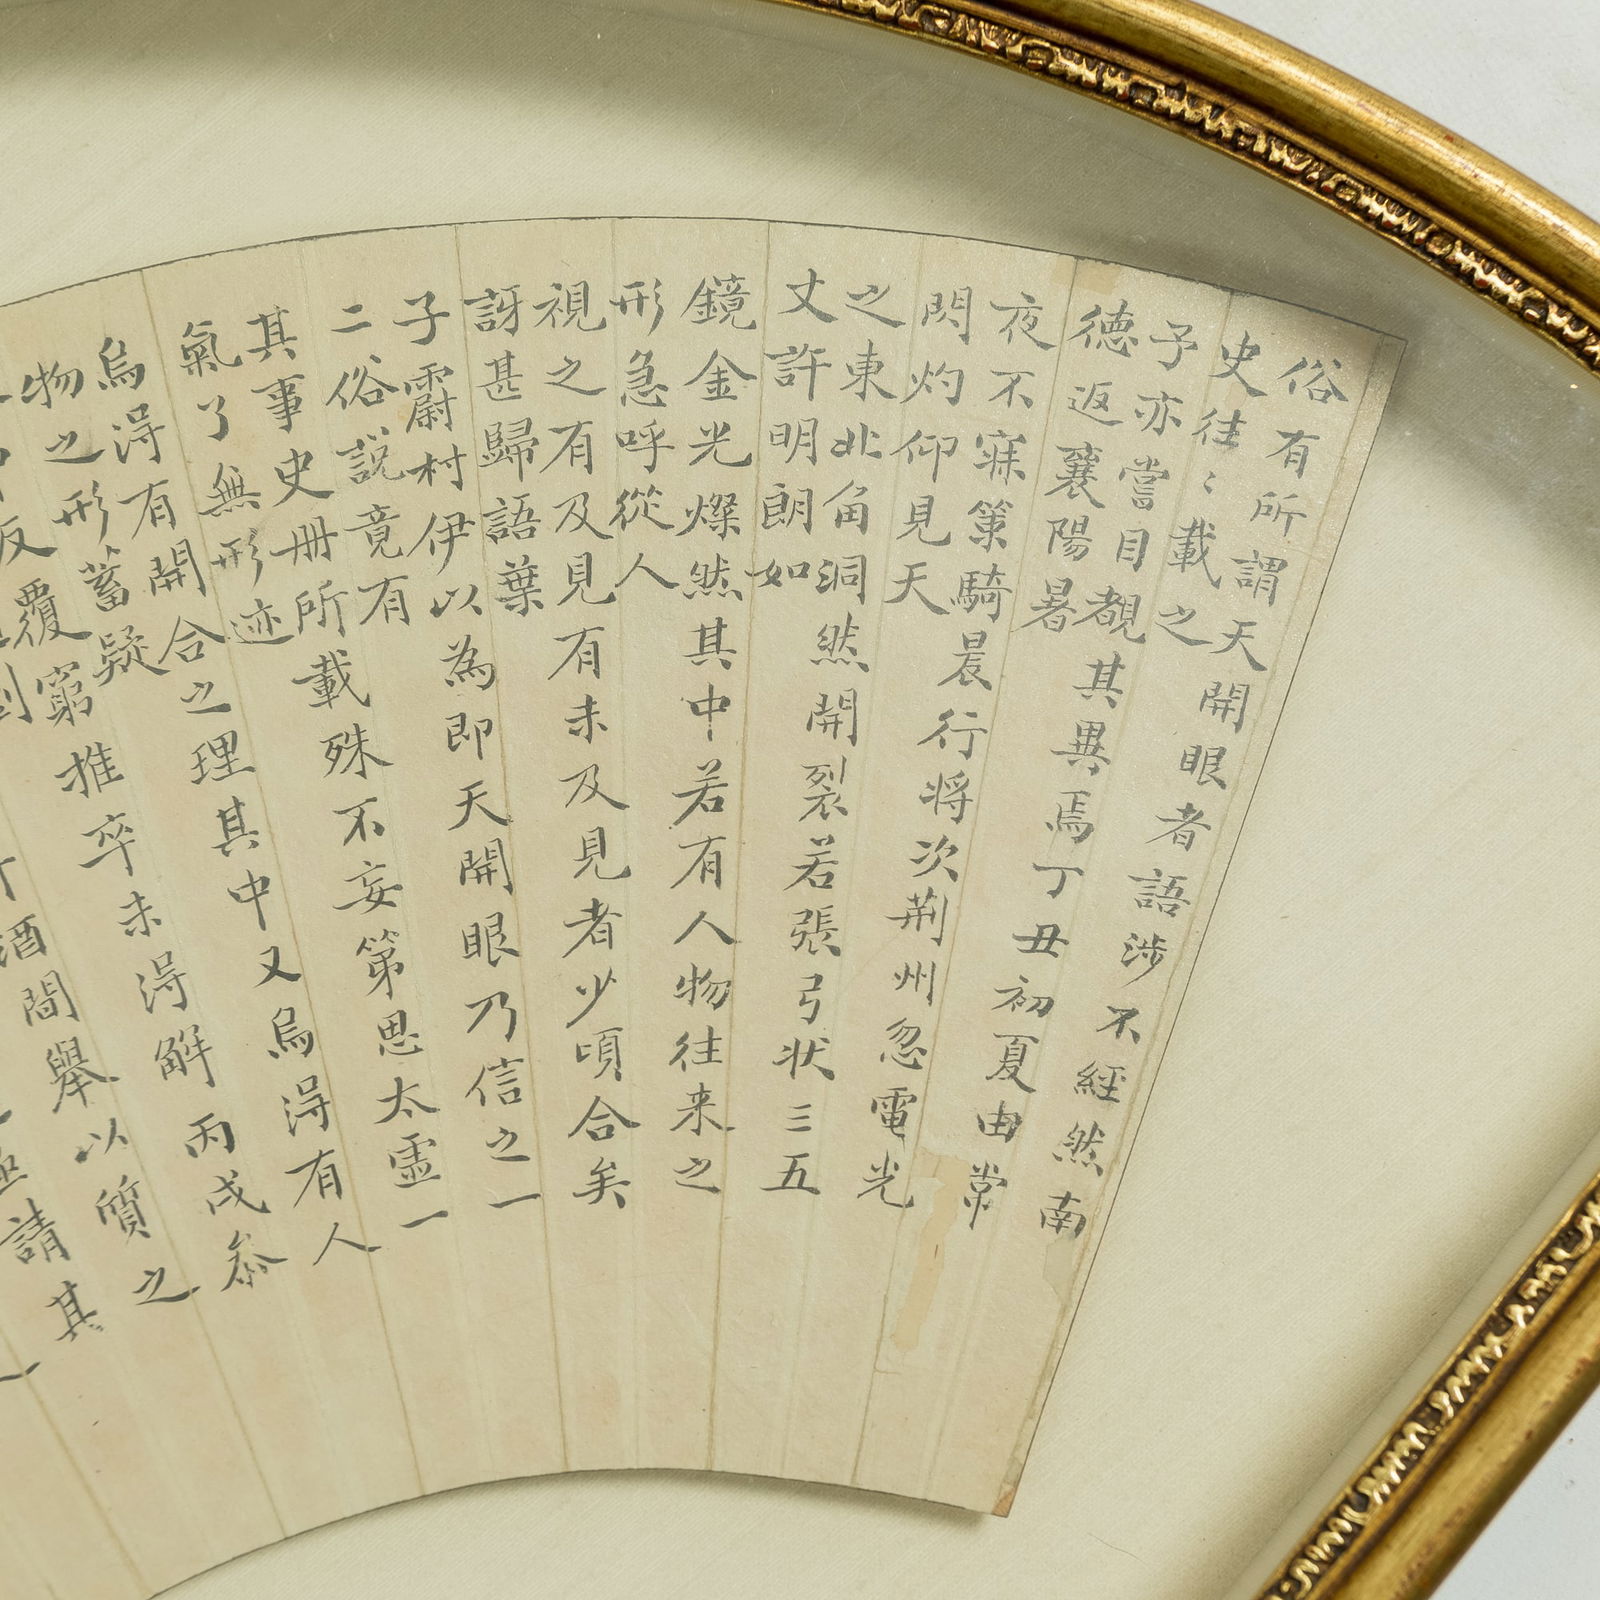 俗有所謂天開眼者語涉不經然南
史往〻載之
予亦嘗目覩其異焉丁丑初夏由常
德返襄陽暑
夜不寐策騎晨行將次荆州忽電光
閃灼仰見天
之東北角洞然開裂若張弓状三五
丈許明朗如
鏡金光燦然其中若有人物往来之
形急呼從人
視之有及見有未及見者少頃合矣
訝甚歸語葉
子霨村伊以為即天開眼乃信之一
二俗説竟有
其事史册所載殊不妄第思太虚一
氣了無形迹
烏得有開合之理其中又烏得有人
物之形蓄疑
反覆窮推卒未得解丙戌叅
酒間舉以質之
請其